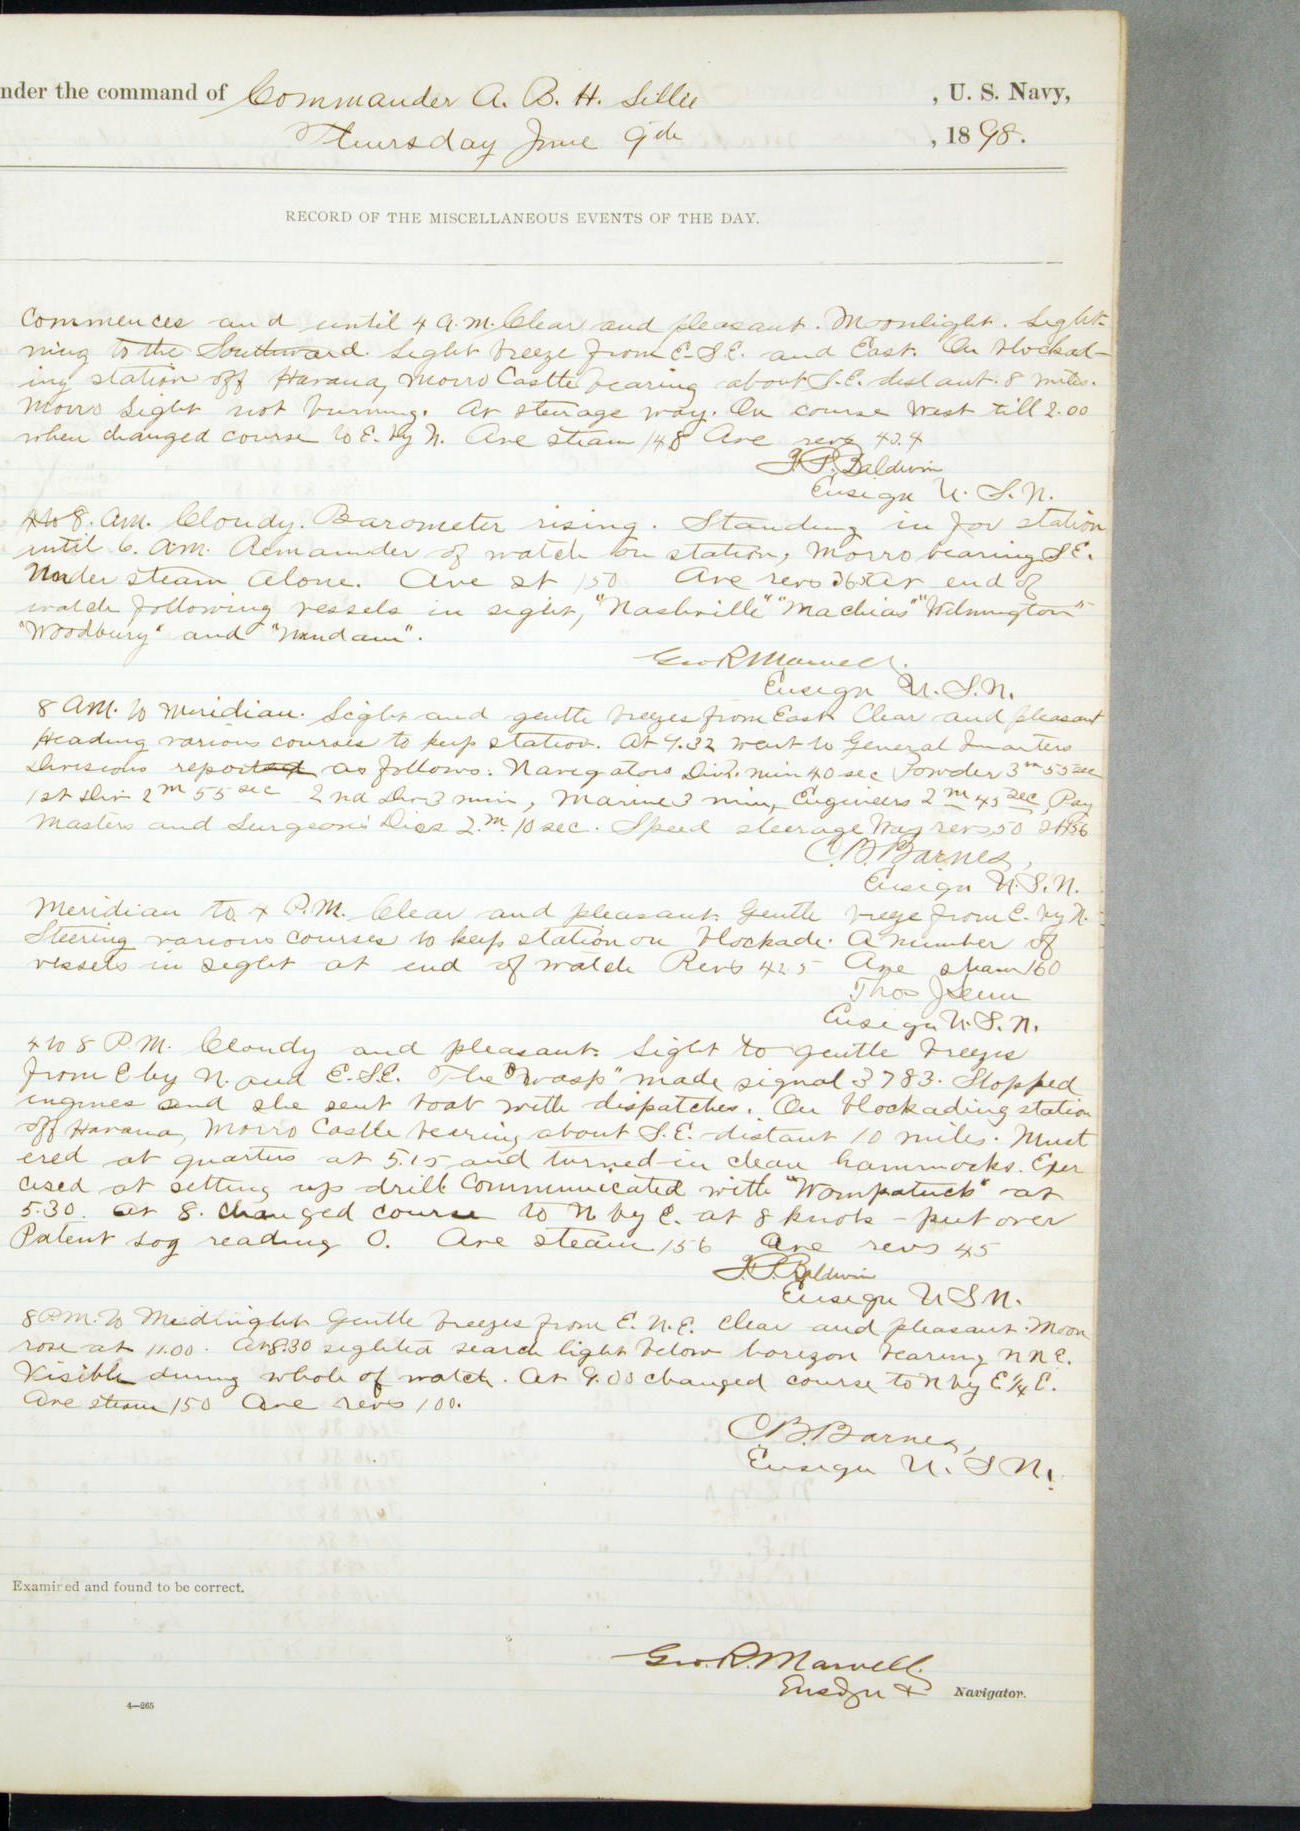 nder the command of Commander A. B. H. Lillie, U. S. Navy,
Thursday June 9th, 1898.
RECORD OF THE MISCELLANEOUS EVENTS OF THE DAY.
Commences and until 4 a.m. Clear and pleasant. Moonlight. Light-
ning to the Southward. Light breeze from E.S.E. and East. On blockad-
ing station off Havana, Morro Castle bearing about S.E. distant 8 miles.
Morro Light not burning. At steerage way. On course West till 2.00
when changed course to E. by N. Ave steam 148 Ave revs 40.4
F. P. Baldwin
Ensign U. S. N.
4 to 8. AM. Cloudy. Barometer rising. Standing in for station
until 6. AM. Remainder of watch on station, Morro bearing SE.
Under steam alone. Ave st 150 Ave revs 36.5 At end of
watch following vessels in sight, "Nashville" "Machias" "Wilmington"
"Woodbury" and "Windom".
Geo R Marvell.
Ensign U. S. N.
8 AM. to Meridian. Light and gentle breezes from East. Clear and pleasant
Heading various courses to keep station. At 9.32 went to General Quarters
Divisions reported as follows. Navigators Div 2. min 40 sec Powder 3m 55 sec
1st Div 2m 55 sec 2nd Div 3 min, Marine 3 min, Engineers 2m 45 sec, Pay
Masters and Surgeons Divs 2.m 10 sec. Speed steerage way revs 50 St 156
C. B. Barnes,
Ensign U. S. N.
Meridian to 4 P.M. Clear and pleasant. Gentle breeze from E. by N.
Steering various courses to keep station on blockade. A number of
vessels in sight at end of watch Revs 42 5 Ave steam 160
Thos J Senn
Ensign U. S. N.
4 to 8 P.M. Cloudy and pleasant. Light to gentle breezes
from E by N. and E.S.E. The "Wasp" made signal 3783. Stopped
engines and she sent boat with dispatches. On blockading station
off Havana, Morro Castle bearing about S.E. distant 10 miles. Must
ered at quarters at 5.15 and turned in clean hammocks. Exer
cised at setting up drill Communicated with "Wompatuck" at
5.30. At 8. changed course to N by E. at 8 knots - put over
Patent Log reading 0. Ave steam 156 Ave revs 45
F. P. Baldwin
Ensign U S N.
8 P.M. to Midnight Gentle breezes from E. N. E. Clear and pleasant. Moon
rose at 11.00. At 8.30 sighted search light below horizon bearing N N E.
Visible during whole of watch. At 9.00 changed course to N by E 1/4 E.
Ave steam 150 Ave revs 100.
C. B. Barnes,
Ensign U. S N.
Examined and found to be correct.
Geo. R. Marvell.
Ensign &
Navigator.
4—265